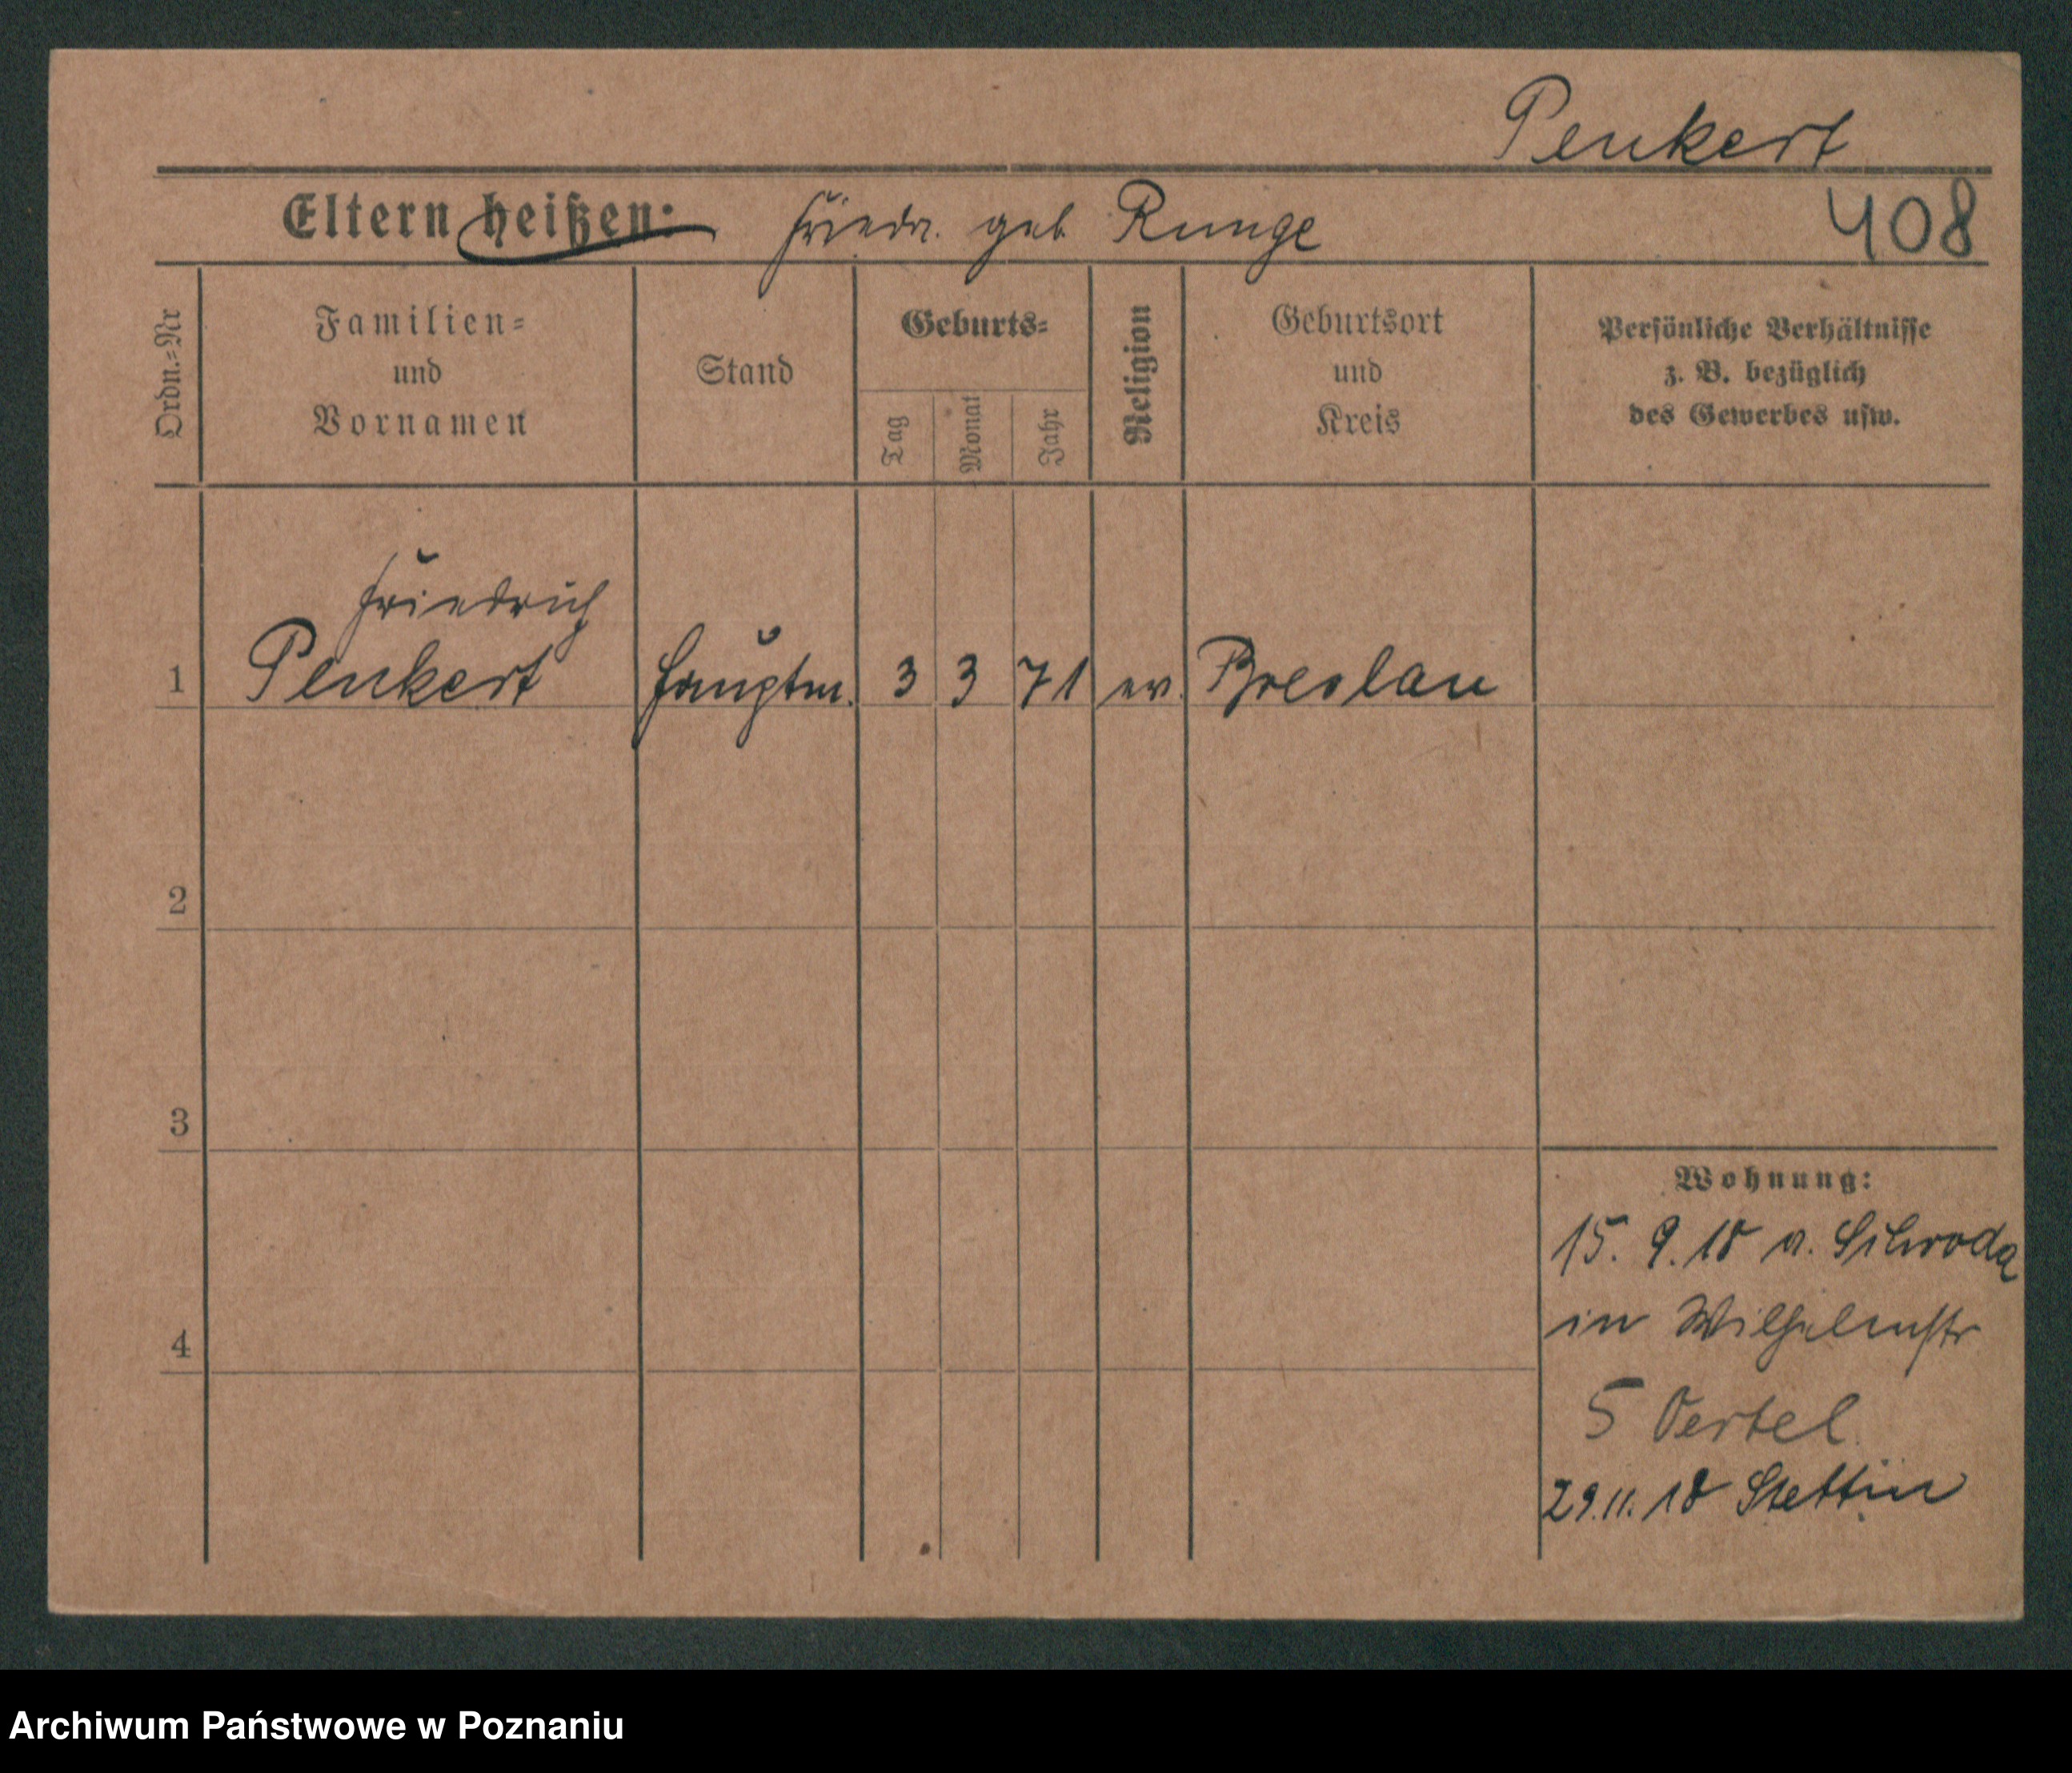 Penkert
Eltern heißen: Friedr. geb. Runge
408
Ordn.-Nr
Familien-
und
Vornamen
Stand
Geburts-
Tag
Monat
Jahr
Religion
Geburtsort
und
Kreis
Persönliche Verhältnisse
z. B. bezüglich
des Gewerbes usw.
Friedrich
1 Penkert Hauptm. 3 3 71 ev. Breslau
2
3
4
Wohnung:
15. 9. 18 a. Schroda
in Wilhelmstr
5 Oertel
29.11.18 Stettin
Archiwum Państwowe w Poznaniu